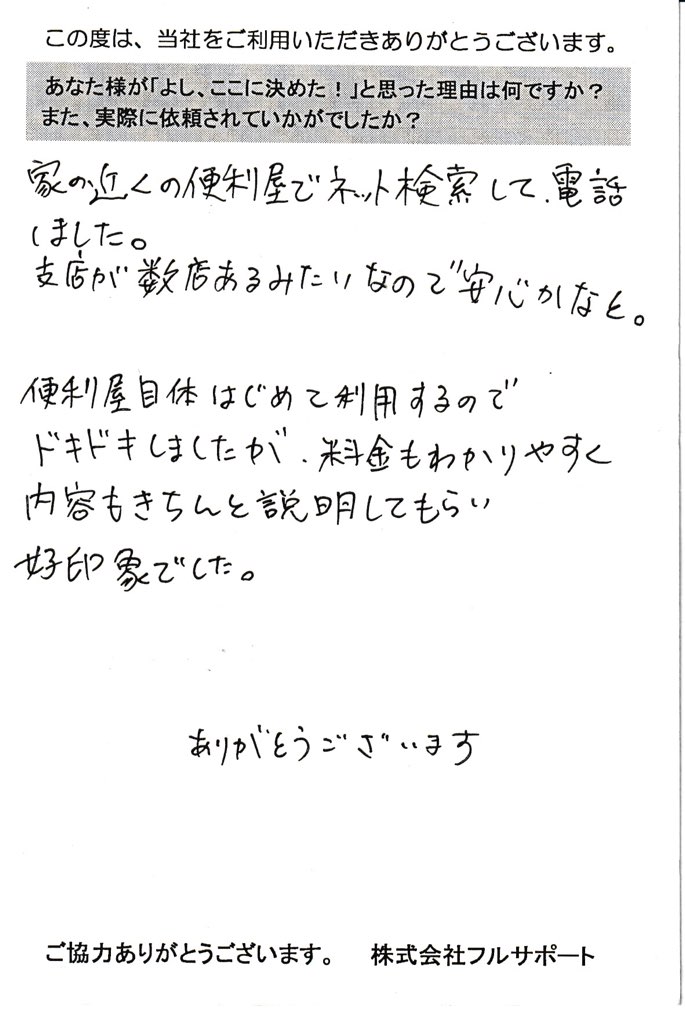 この度は、当社をご利用いただきありがとうございます。
あなた様が「よし、ここに決めた！」と思った理由は何ですか？
また、実際に依頼されていかがでしたか？
家の近くの便利屋でネット検索して、電話
しました。
支店が数店あるみたいなので安心かなと。
便利屋自体はじめて利用するので
ドキドキしましたが、料金もわかりやすく
内容もきちんと説明してもらい
好印象でした。
ありがとうございます
ご協力ありがとうございます。　株式会社フルサポート